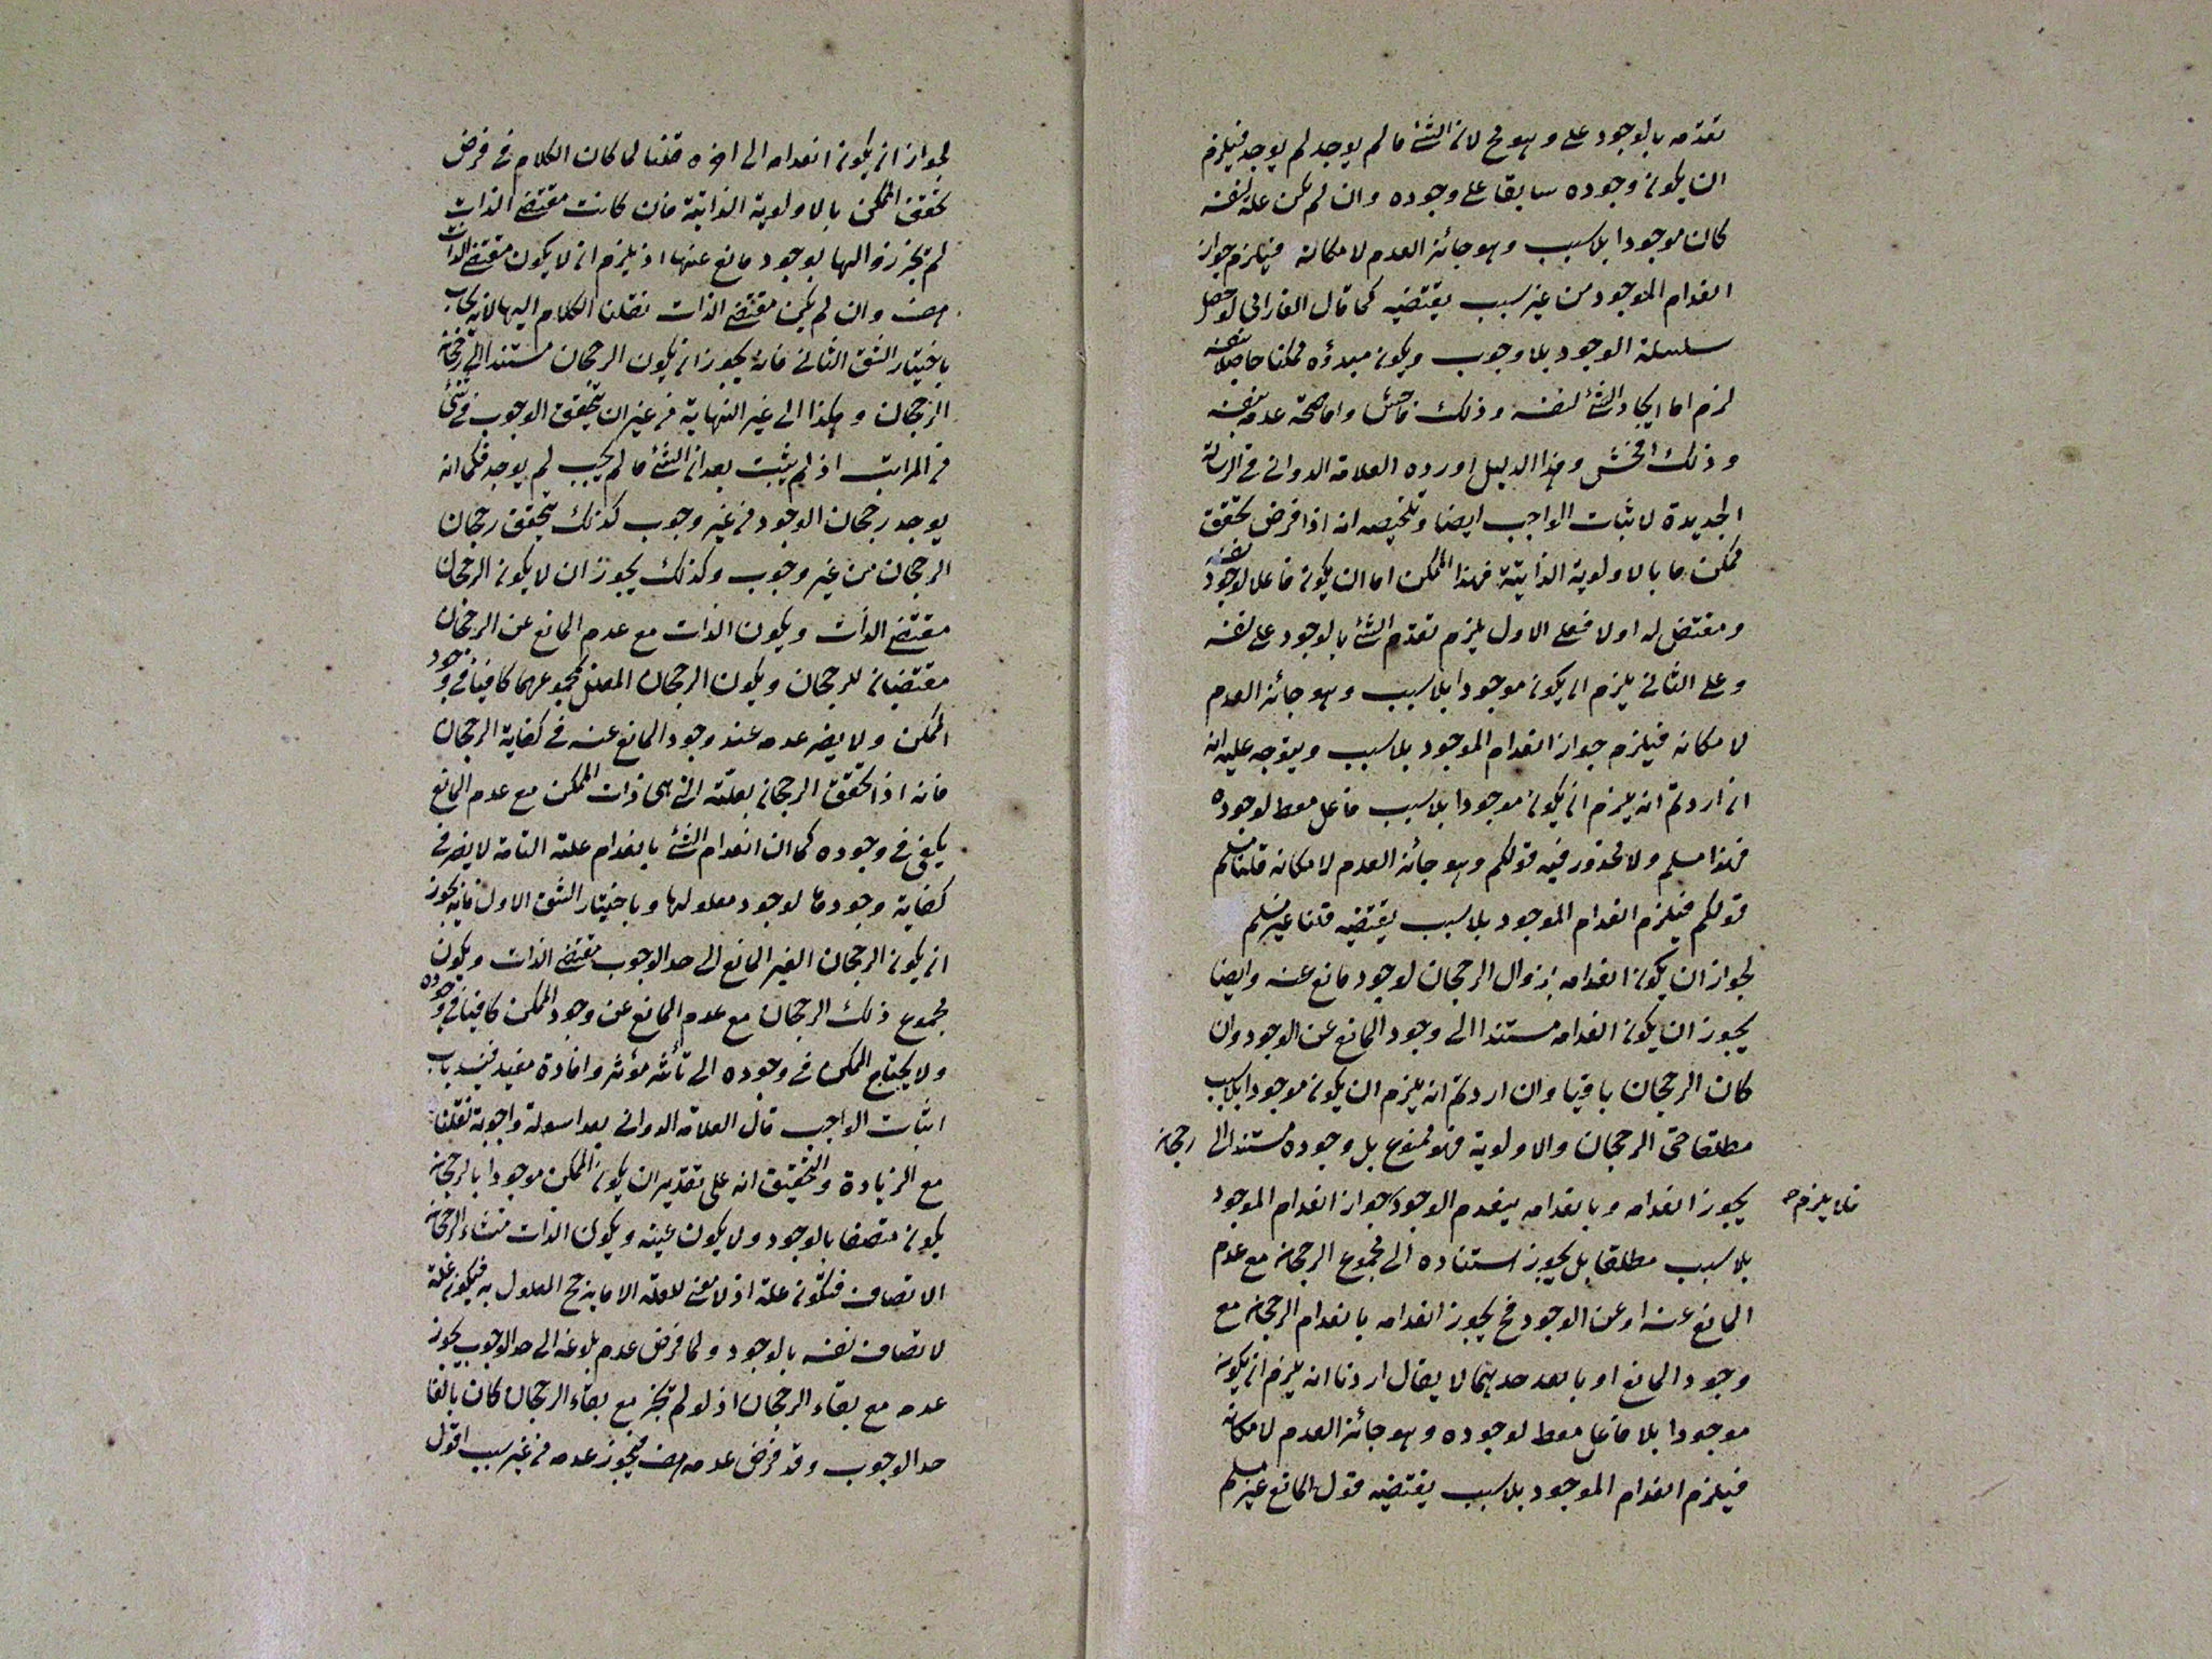 تقدمه بالوجود على وهو مح لان الشئ ما لم يوجد لم يوجد فيلزم
ان يكون وجوده سابقا على وجوده وان لم يكن علة لنفسه
كان موجودا بلا سبب وهو جائز العدم لامكانه فيلزم جواز
انعدام الموجود من غير سبب يقتضيه كما قال الفارابى لو حصل
سلسلة الوجود بلا وجوب ويكون مبدؤه ممكنا حاصلا بنفسه
لزم اما ايجاد الشئ لنفسه وذلك فاحش واما صحة عدمه بنفسه
وذلك افحش وهذا الدليل اورده العلامة الدوانى فى الرسالة
الجديدة لاثبات الواجب ايضا وتلخيصه انه اذا فرض تحقق
ممكن ما بالاولوية الذاتية فهذا الممكن اما ان يكون فاعلا لوجود نفسه
ومقتض له اولا فعلى الاول يلزم تقدم الشئ بالوجود على نفسه
وعلى الثانى يلزم ان يكون موجودا بلا سبب وهو جائز العدم
لامكانه فيلزم جواز انعدام الموجود بلا سبب ويتوجه عليه انه
ان اردتم انه يلزم ان يكون موجودا بلا سبب فاعل معط لوجوده
فهذا مسلم ولا محذور فيه قولكم وهو جائز العدم لامكانه قلنا مسلم
قولكم فيلزم انعدام الموجود بلا سبب يقتضيه قلنا غير مسلم
لجواز ان يكون انعدامه بزوال الرجحان لوجود مانع عنه وايضا
يجوز ان يكون انعدامه مستندا الى وجود المانع عن الوجود وان
كان الرجحان باقيا وان اردتم انه يلزم ان يكون موجودا بلا سبب
مطلقا حتى الرجحان والاولوية فهو ممنوع بل وجوده مستند الى رجحانه
يجوز انعدامه وبانعدامه ينعدم الوجود جواز انعدام الموجود
فلا يلزم ح
بلا سبب مطلقا بل يجوز استناده الى مجموع الرجحان مع عدم
المانع عنه او عن الوجود فح يجوز انعدامه بانعدام الرجحان مع
وجود المانع او باحدهما لا يقال اردنا انه يلزم ان يكون
موجودا بلا فاعل معط لوجوده وهو جائز العدم لامكانه
فيلزم انعدام الموجود بلا سبب يقتضيه قول المانع غير مسلم
لجواز ان يكون انعدامه الى اخره قلنا لما كان الكلام فى فرض
تحقق الممكن بالاولوية الذاتية فان كانت مقتضى الذات
لم تجز زوالها بوجود مانع عنها اذ يلزم ان لا يكون مقتضى الذات
هف وان لم يكن مقتضى الذات نقلنا الكلام اليها لانه يجاب
باختيار الشق الثانى فانه يجوز ان يكون الرجحان مستندا الى رجحان
الرجحان وهكذا الى غير النهاية من غير ان يتحقق الوجوب فى شئ
من المراتب اذ لم يثبت بعد ان الشئ ما لم يجب لم يوجد فكما انه
يوجد رجحان الوجود من غير وجوب كذلك يتحقق رجحان
الرجحان من غير وجوب وكذلك يجوز ان لا يكون الرجحان
مقتضى الذات ويكون الذات مع عدم المانع عن الرجحان
مقتضيان للرجحان ويكون الرجحان المعلل بمجموعهما كافيا فى وجود
الممكن ولا يضر عدمه عند وجود المانع عنه فى كفاية الرجحان
فانه اذا تحقق الرجحان بعلته التى هى ذات الممكن مع عدم المانع
يكفى فى وجوده كما ان انعدام الشئ بانعدام علته التامة لا يضر فى
كفاية وجودها لوجود معلولها وباختيار الشق الاول فانه يجوز
ان يكون الرجحان الغير المانع الى حد الوجوب مقتضى الذات ويكون
مجموع ذلك الرجحان مع عدم المانع عن وجود الممكن كافيا فى وجوده
ولا يحتاج الممكن فى وجوده الى تأثير مؤثر وافادة مفيد فينسد باب
اثبات الواجب قال العلامة الدوانى بعد اسولة واجوبة نقلنا
مع الزيادة والتحقيق انه على تقدير ان يكون الممكن موجودا بالرجحان
يكون متصفا بالوجود ولا يكون عينه ويكون الذات منشاء لرجحان
الاتصاف فتكون علة اذ لا معنى للعلة الا ما يرجح المعلول به فيكون علة
لاتصاف نفسه بالوجود ولما فرض عدم بلوغه الى حد الوجوب يجوز
عدمه مع بقاء الرجحان اذ لو لم تجز مع بقاء الرجحان كان بالغا
حد الوجوب وقد فرض عدمه هف فيجوز عدمه من غير سبب اقول